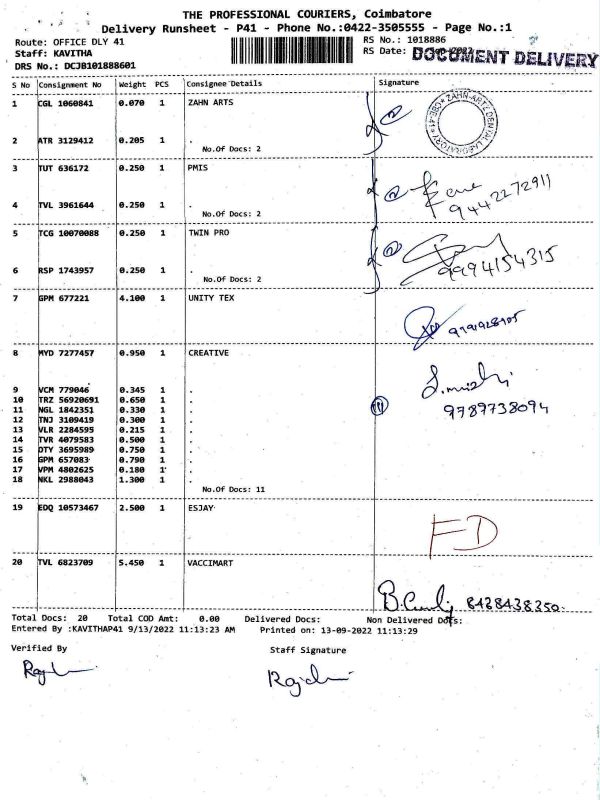 THE PROFESSIONAL COURIERS, Coimbatore
Delivery Runsheet - P41 - Phone No.:0422-3505555 - Page No.:1
Route: OFFICE DLY 41
RS No.: 1018886
Staff: KAVITHA
RS Date:
DOCUMENT DELIVERY
DRS No.: DCJB101888601
S No Consignment No Weight PCS Consignee Details Signature
1 CGL 1060841 0.070 1 ZAHN ARTS
ZAHN-ARTZ DENTAL LABORATORY CBE-41
2 ATR 3129412 0.205 1 .
No.Of Docs: 2
3 TUT 636172 0.250 1 PMIS
9442272911
4 TVL 3961644 0.250 1 .
No.Of Docs: 2
5 TCG 10070088 0.250 1 TWIN PRO
9994154315
6 RSP 1743957 0.250 1 .
No.Of Docs: 2
7 GPM 677221 4.100 1 UNITY TEX
8 MYD 7277457 0.950 1 CREATIVE
9 VCM 779046 0.345 1 .
10 TRZ 56920691 0.650 1 .
11 NGL 1842351 0.330 1 .
9789738094
12 TNJ 3109419 0.300 1 .
13 VLR 2284595 0.215 1 .
14 TVR 4079583 0.500 1 .
15 DTY 3695989 0.750 1 .
16 GPM 657083 0.790 1 .
17 VPM 4802625 0.180 1 .
18 NKL 2988043 1.300 1 .
No.Of Docs: 11
19 EDQ 10573467 2.500 1 ESJAY
FD
20 TVL 6823709 5.450 1 VACCIMART
8428438350
Total Docs: 20 Total COD Amt: 0.00 Delivered Docs: Non Delivered Docs:
Entered By :KAVITHAP41 9/13/2022 11:13:23 AM Printed on: 13-09-2022 11:13:29
Verified By Staff Signature